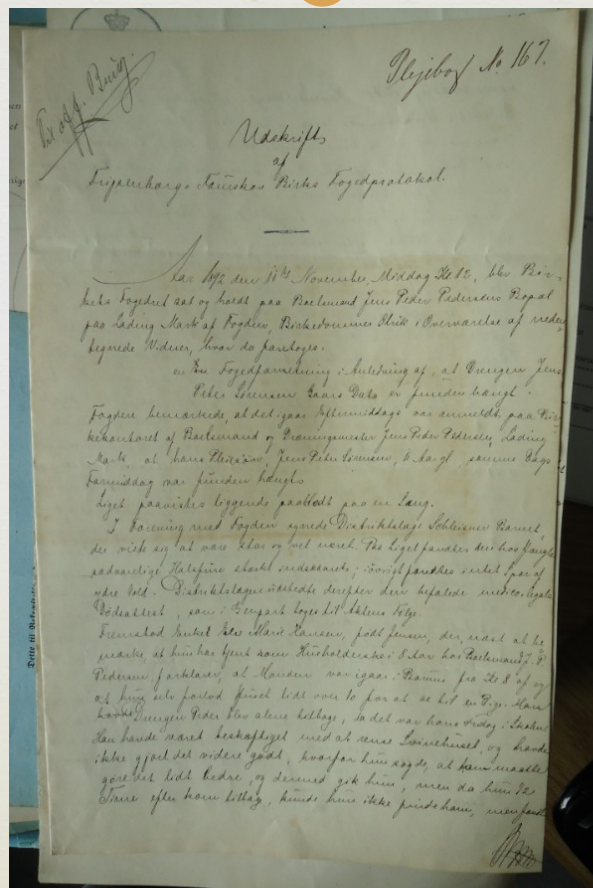 Plejebog No. 167.
Udskrift
af
Frijsenborgs Faurskov Birks Fogedprotokol.
Aar 1892 den 11te November, Middag Kl 12, blev Bir-
kets Fogedret sat og holdt paa Boelsmand Jens Peder Pedersens Bopæl
paa Lading Mark af Fogden, Birkedommer i Overværelse af neden-
tegnede Vidner, hvor da foretoges.
En Fogedforretning i Anledning af, at Drengen Jens
Peter Sørensen Gaars Dato er funden hængt.
Fogden bemærkede, at det igaar Eftermiddags var anmeldt paa Bir-
kekontoret af Boelsmand og Jens Peder Pedersen, Lading
Mark, at hans Pleiesøn, Jens Peter Sørensen, 8 Aar gl, samme Dags
Formiddag var funden hængt.
Liget paavistes liggende paa en Seng.
I Forening med Fogden synede Distriktslæge Schleisner Barnet,
der viste sig at være stor og vel næret. Paa Liget fandtes den hos Hængte
sædvanlige Halsfure stærkt indskaaret; iøvrigt fandtes intet Spor af
ydre Vold. Distriktslægen udstedte derefter den befalede medico-legale
Dødsattest, som i Genpart toges til Aktens Følge.
Fremstod Enke Marie Hansen, født Jensen, der, næst at be-
mærke, at hun har tjent som Husholderske i 8 Aar hos Boelsmand J. P.
Pedersen, forklarer, at Manden var igaar i fra Kl 8 af og
at hun selv forlod Huset lidt over 10 for at se til en Bigt. Man
havde Drengen Peder blev alene tilbage, da det var hans Fridag i Skolen.
Han havde været beskæftiget med at rense Svinehuset, og havde
ikke gjort det videre godt, hvorfor hun sagde, at han maatte
gøre det lidt bedre, og dermed gik hun, men da hun
Time efter kom tilbage, kunde hun ikke finde ham, men fandt
Dette til